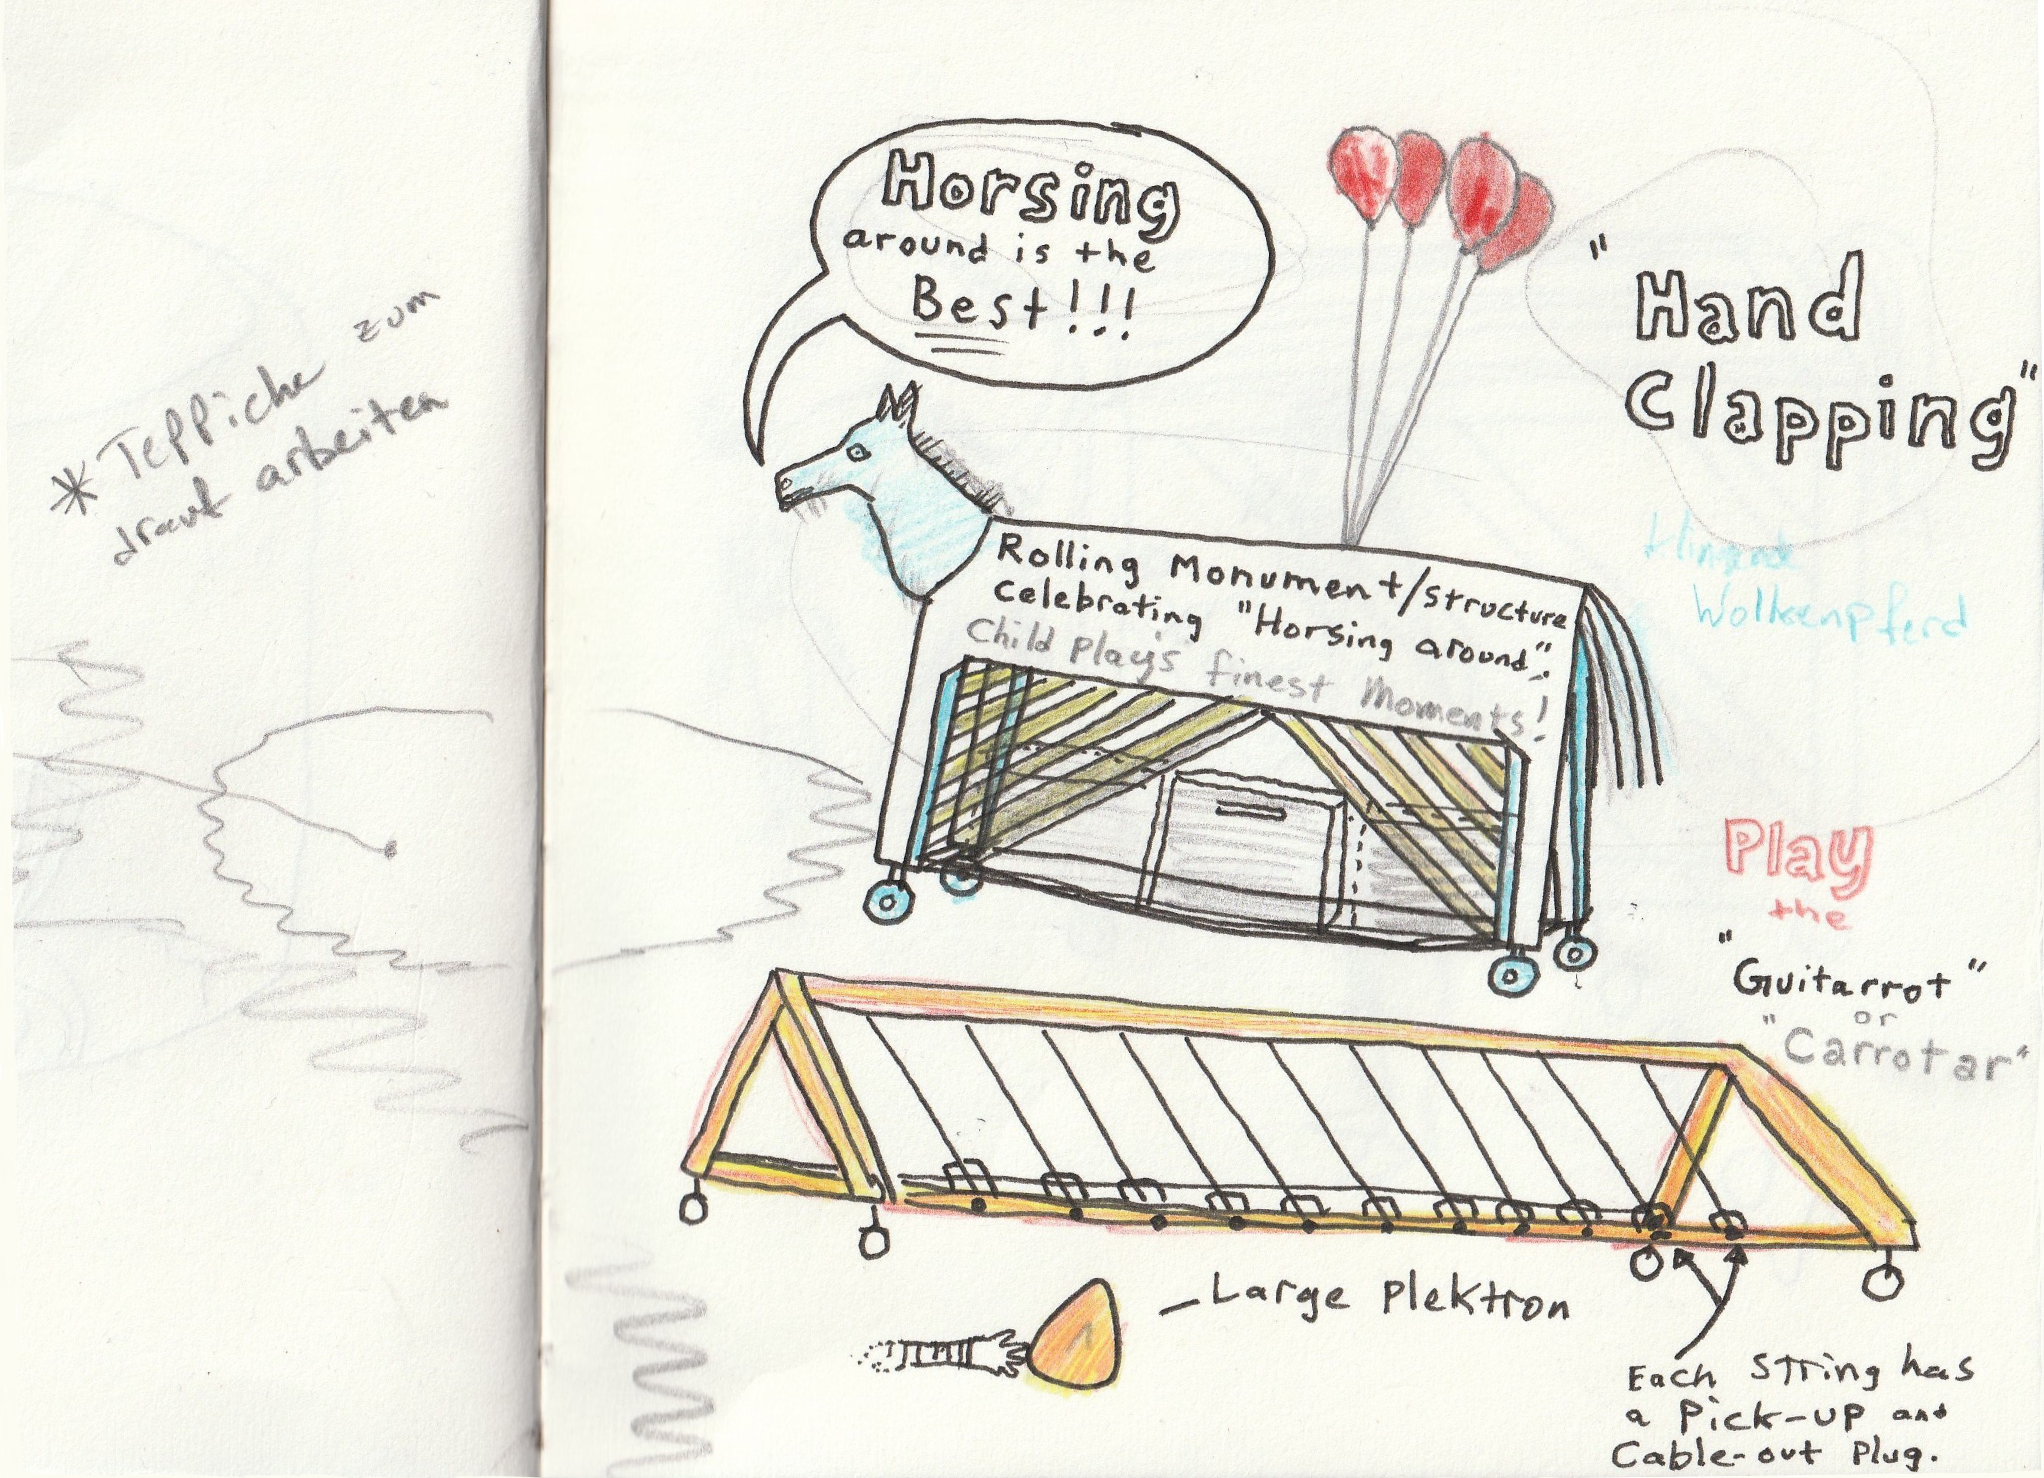 * Teppiche zum
drauf arbeiten
Horsing
around is the
Best!!!
"Hand
Clapping"
Rolling Monument/structure
celebrating "Horsing around".
Child play's finest Moments!
Wolkenpferd
Play
the
"Guitarrot"
or
"Carrotar"
Large Plektron
Each string has
a Pick-up and
Cable-out Plug.